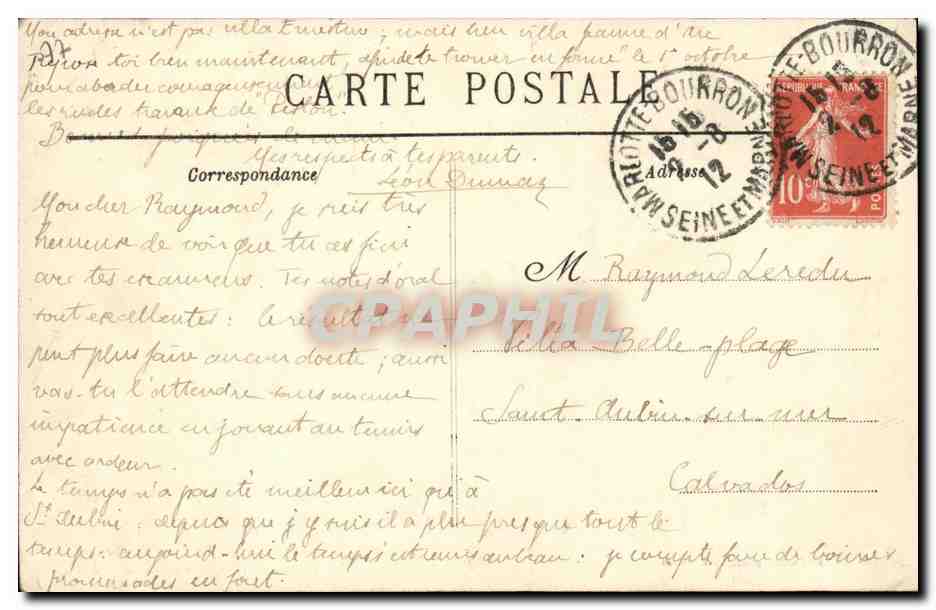 Mon adresse n'est pas villa Ernestine, mais bien villa Jeanne d'Arc
77
Repose toi bien maintenant, afin de te trouver en forme le 1er octobre
pour aborder courageusement
les rudes travaux de
CARTE POSTALE
Mes respects à tes parents.
Léon
Correspondance
Adresse
MARLOTTE-BOURRON
15 15
2 -8
12
SEINE ET MARNE
MARLOTTE-BOURRON
15 15
2 -8
12
SEINE ET MARNE
REPUBLIQUE FRANCAISE
10 c
POSTES
Mon cher Raymond, je suis très
heureuse de voir que tu as fini
avec tes examens. Tes notes d'oral
sont excellentes : le résultat ne
peut plus faire aucun doute ; aussi
vas-tu l'attendre sans aucune
impatience en jouant au tennis
avec ardeur.
Le temps n'a pas été meilleur ici qu'à
St Aubin : depuis que j'y suis il a plu presque tout le
temps : aujourd-hui le temps est au beau : je compte faire de bonnes
promenades en foret.
M Raymond Leredu
Villa Belle-plage
Saint-Aubin-sur-mer
Calvados
CPAPHIL